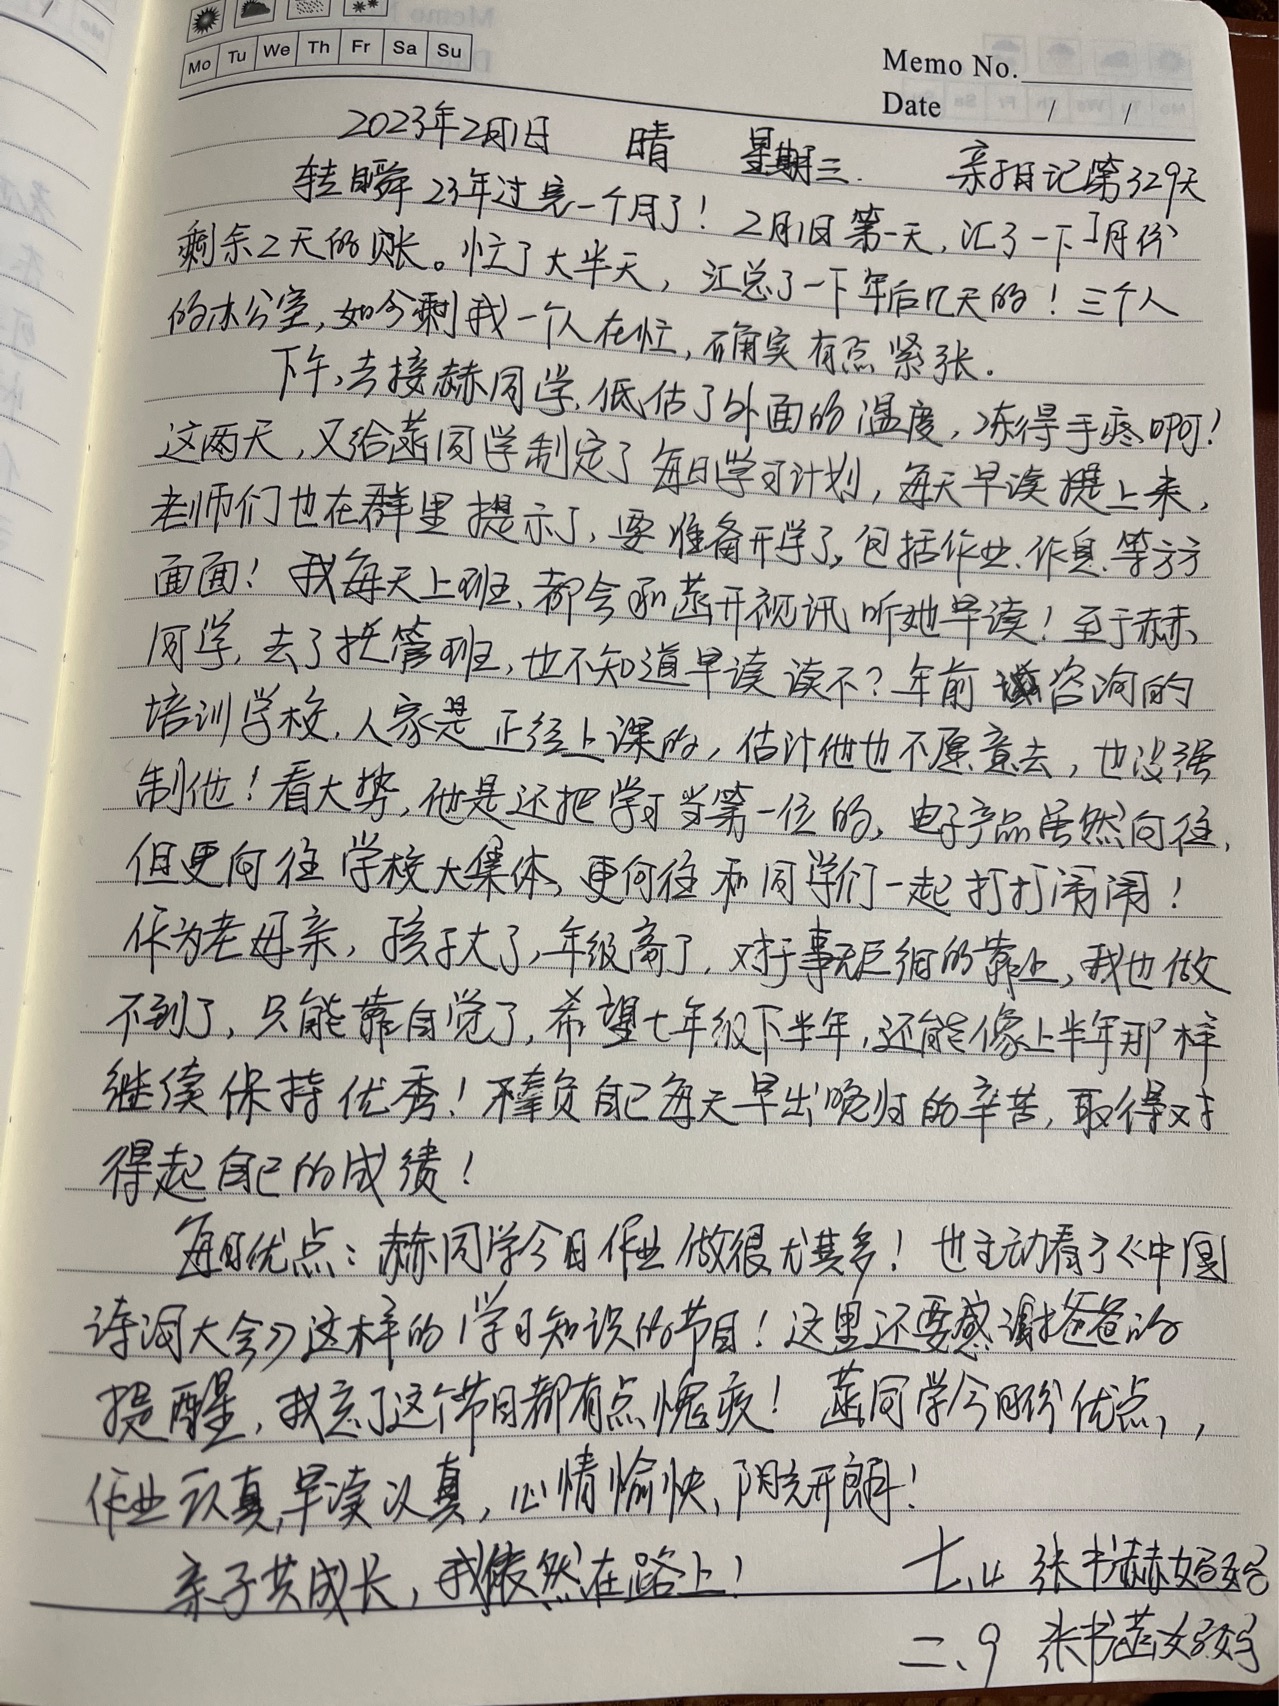 Mo Tu We Th Fr Sa Su
Memo No.
Date / /
2023年2月1日 晴 星期三. 亲子日记第329天
转瞬23年过完一个月了！2月1日第一天,汇了一下1月份
剩余2天的账。忙了大半天,汇总了一下年后几天的！三个人
的办公室,如今剩我一个人在忙,确实有点紧张.
下午,去接赫同学,低估了外面的温度,冻得手疼啊！
这两天,又给菡同学制定了每日学习计划,每天早读提上来,
老师们也在群里提示了,要准备开学了,包括作业、作息、等方方
面面！我每天上班,都会和菡开视讯听她早读！至于赫
同学,去了托管班,也不知道早读读不？年前咨询的
培训学校,人家是正经上课的,估计他也不愿意去,也没强
制他！看大势,他是还把学习当第一位的,电子产品虽然向往,
但更向往学校大集体,更向往和同学们一起打打闹闹！
作为老母亲,孩子大了,年级高了,对于事无巨细的靠上,我也做
不到了,只能靠自觉了,希望七年级下半年,还能像上半年那样
继续保持优秀！不辜负自己每天早出晚归的辛苦,取得对
得起自己的成绩！
每日优点：赫同学今日作业做很尤其多！也主动看了《中国
诗词大会》这样的学习知识的节目！这里还要感谢爸爸的
提醒,我忘了这个节目都有点愧疚！菡同学今日份优点,,
作业认真,早读认真,心情愉快,阳光开朗！
亲子共成长,我依然在路上！ 七.4 张书赫妈妈
二、9 张书菡妈妈